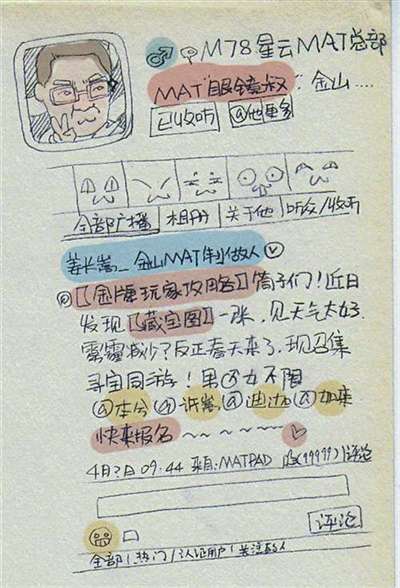 M78星云MAT总部
MAT"眼镜叔": 金山....
已收听 @他更多
全部广播 相册 关于他 听众/收听
姜长嵩_金山MAT制做人
【金牌玩家攻略】筒子们!近日
发现【藏宝图】一张,见天气太好
雾霾减少?反正春天来了,现召集
寻宝同游!男女不限
@本兮 @许嵩 @迪迦 @加来
快来报名~~~~~~
4月?日 09:44 来自:MATPAD (99999)|评论
评论
全部|热门|认证用户|关注的人